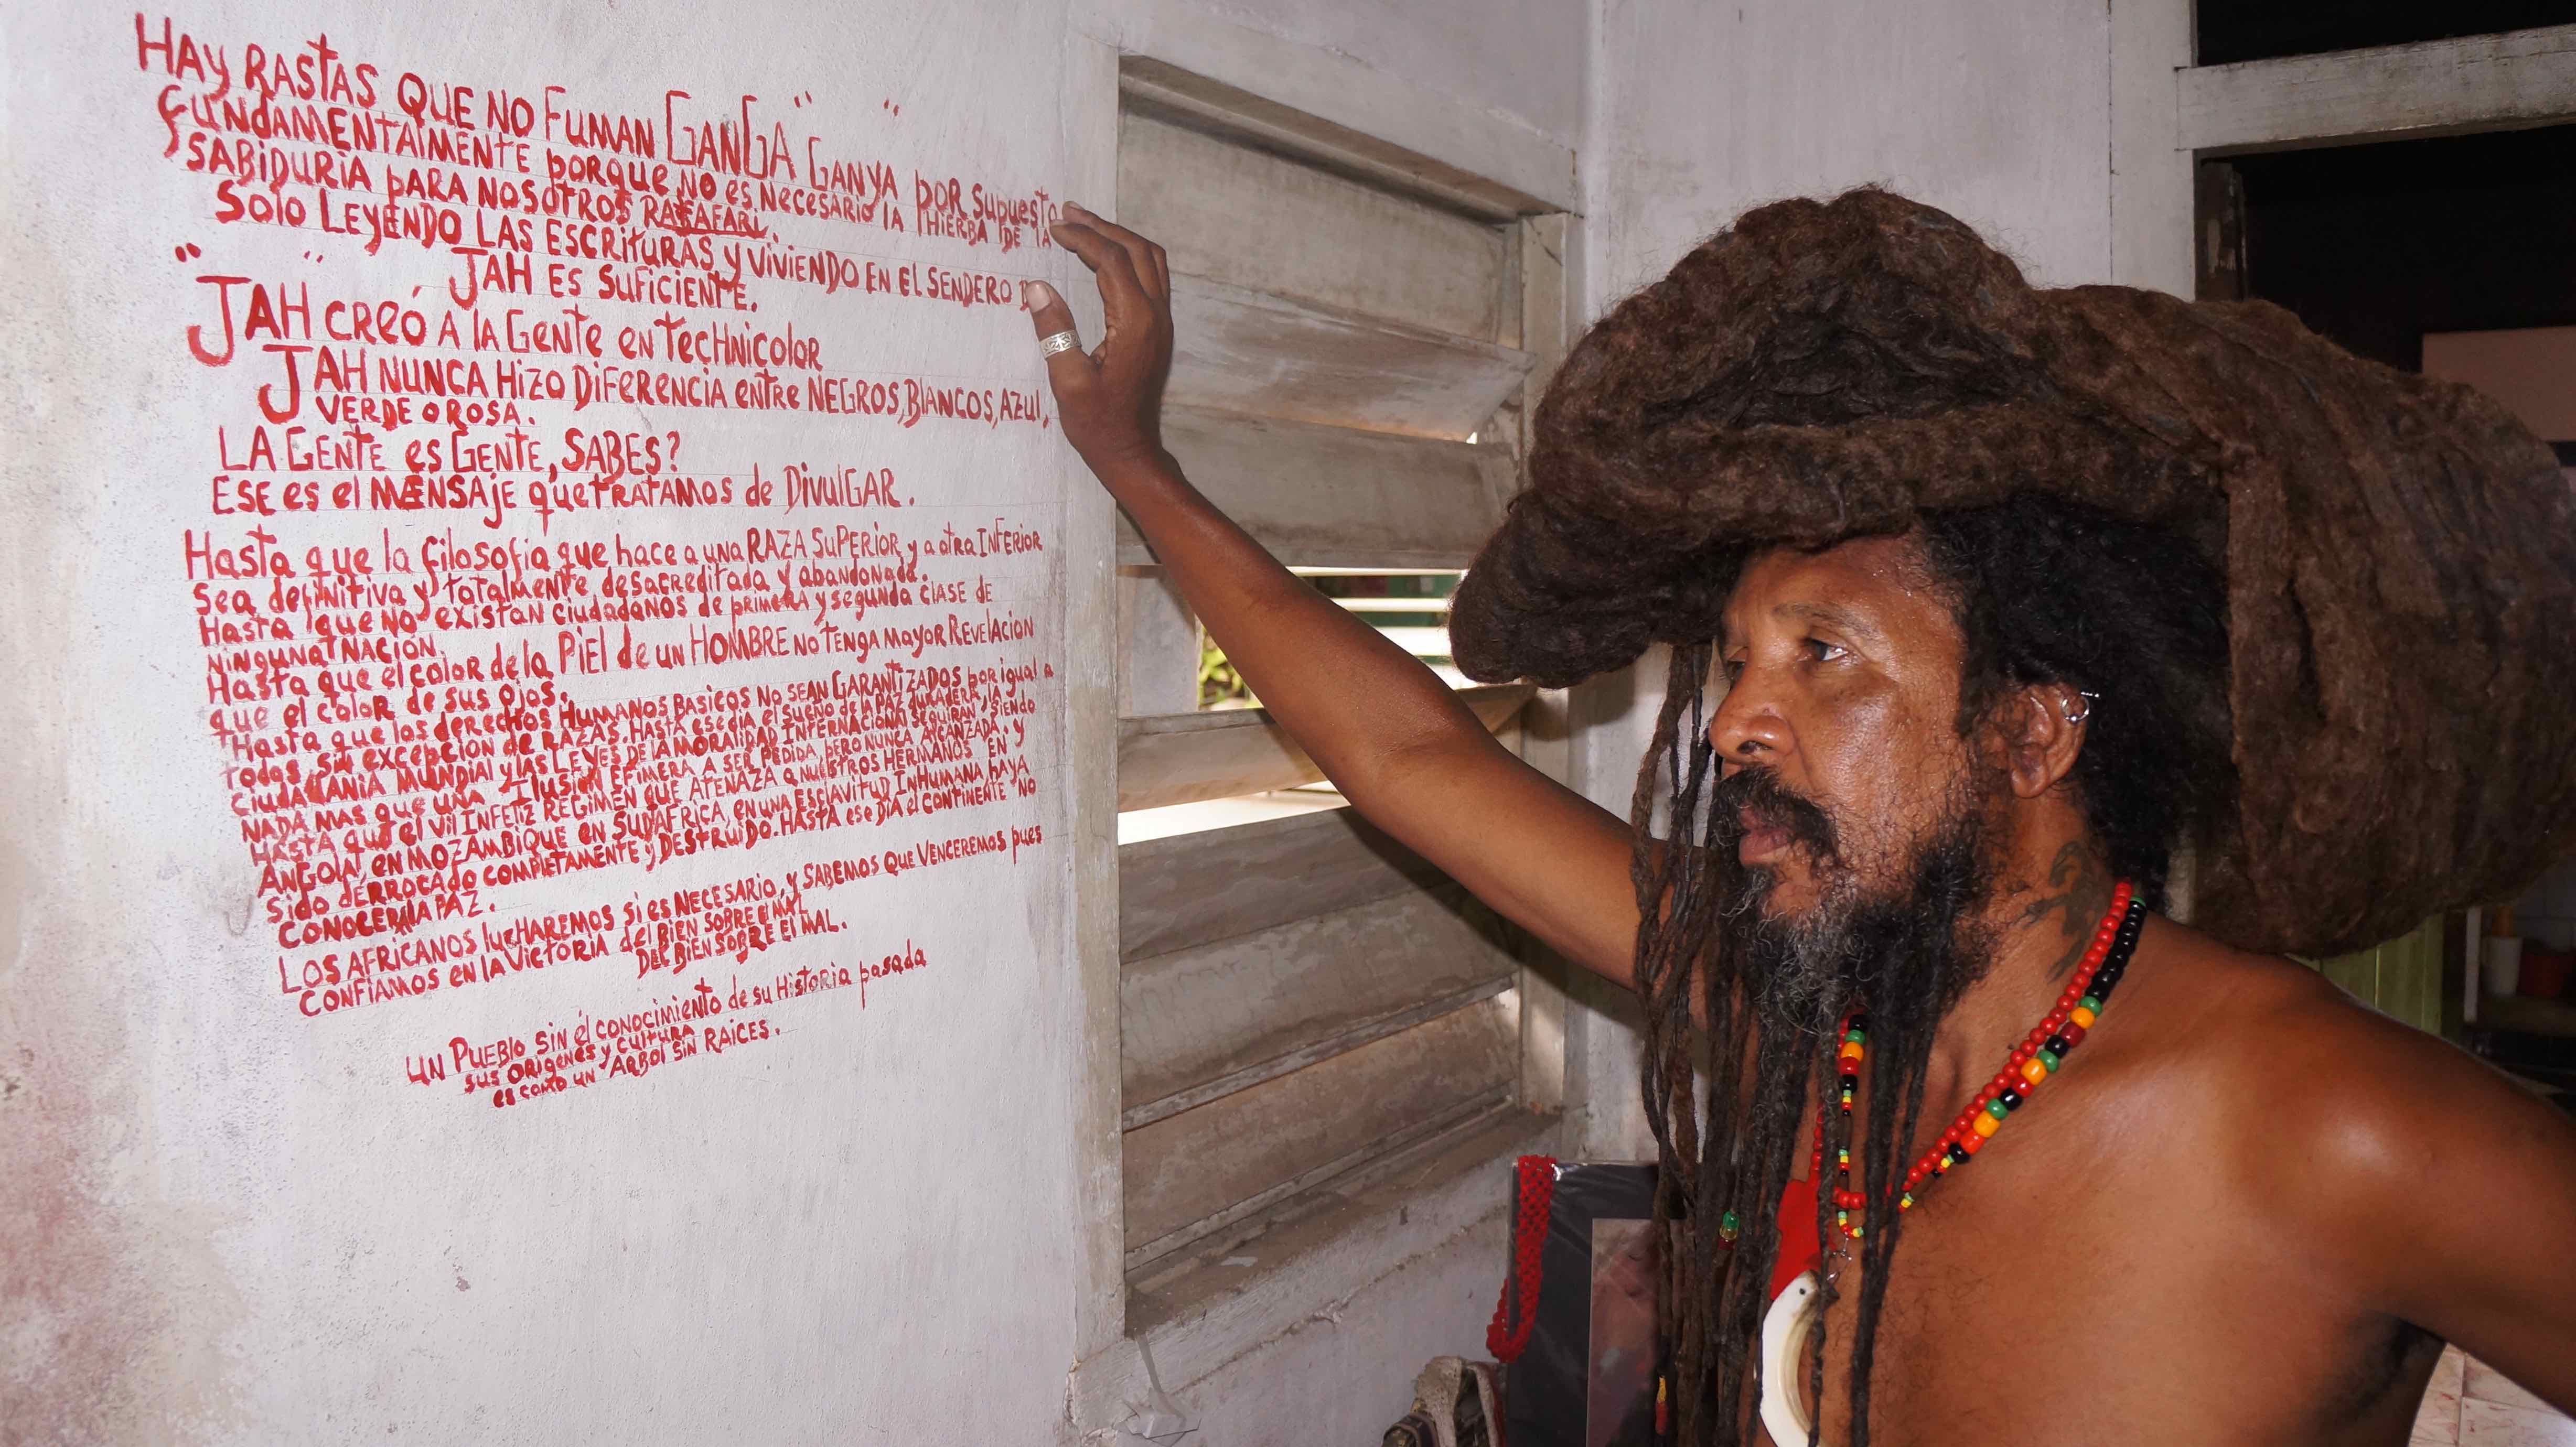 HAY RASTAS QUE NO FUMAN GANGA "GANYA" POR SUPUESTO
FUNDAMENTALMENTE PORQUE NO ES NECESARIO LA HIERBA DE LA
SABIDURIA PARA NOSOTROS RASAFARI.
SOLO LEYENDO LAS ESCRITURAS Y VIVIENDO EN EL SENDERO
JAH ES SUFICIENTE.
"JAH" CREÓ A LA GENTE EN TECHNICOLOR
JAH NUNCA HIZO DIFERENCIA ENTRE NEGROS, BLANCOS, AZUL,
VERDE O ROSA.
LA GENTE ES GENTE, SABES?
ESE ES EL MENSAJE QUE TRATAMOS DE DIVULGAR.
Hasta que la filosofia que hace a una RAZA SUPERIOR y a otra INFERIOR
Sea definitiva y totalmente desacreditada y abandonada.
Hasta que no existan ciudadanos de primera y segunda clase de
NINGUNA NACION.
Hasta que el color de la PIEL de un HOMBRE no tenga mayor REVELACION
que el color de sus ojos.
Hasta que los derechos HUMANOS BASICOS NO SEAN GARANTIZADOS por igual a
todos sin excepcion de RAZAS. HASTA ese dia el sueño de la PAZ duradera, la
CIUDADANIA MUNDIAL y las LEYES DE LA MORALIDAD INTERNACIONAL seguiran siendo
NADA MAS que una ILUSION EFIMERA A SER PEDIDA pero NUNCA ALCANZADA. y
HASTA que el Vil INFELIZ REGIMEN QUE ATENAZA a NUESTROS HERMANOS EN
ANGOLA, EN MOZAMBIQUE EN SUDAFRICA, EN UNA ESCLAVITUD INHUMANA HAYA
SIDO DERROCADO COMPLETAMENTE y DESTRUIDO. HASTA ese DIA el CONTINENTE NO
CONOCERA LA PAZ.
LOS AFRICANOS lucHAREMOS si es NECESARIO, y SABEMOS QUE VENCEREMOS pues
CONFIAMOS EN LA VICTORIA del BIEN SOBRE El MAL
DEL BIEN SOBRE El MAL.
UN PUEBLO sin él conocimiento de su Historia pasada
sus ORIGENES y CULTURA
es como un ARBOL SIN RAICES.